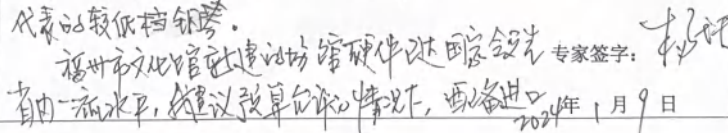 代表的较低档钢琴。
福州市文化馆新建的场馆硬件已达国家领先 专家签字：
省内一流水平，我建议预算允许的情况下，配备进口
2024年 1 月 9 日